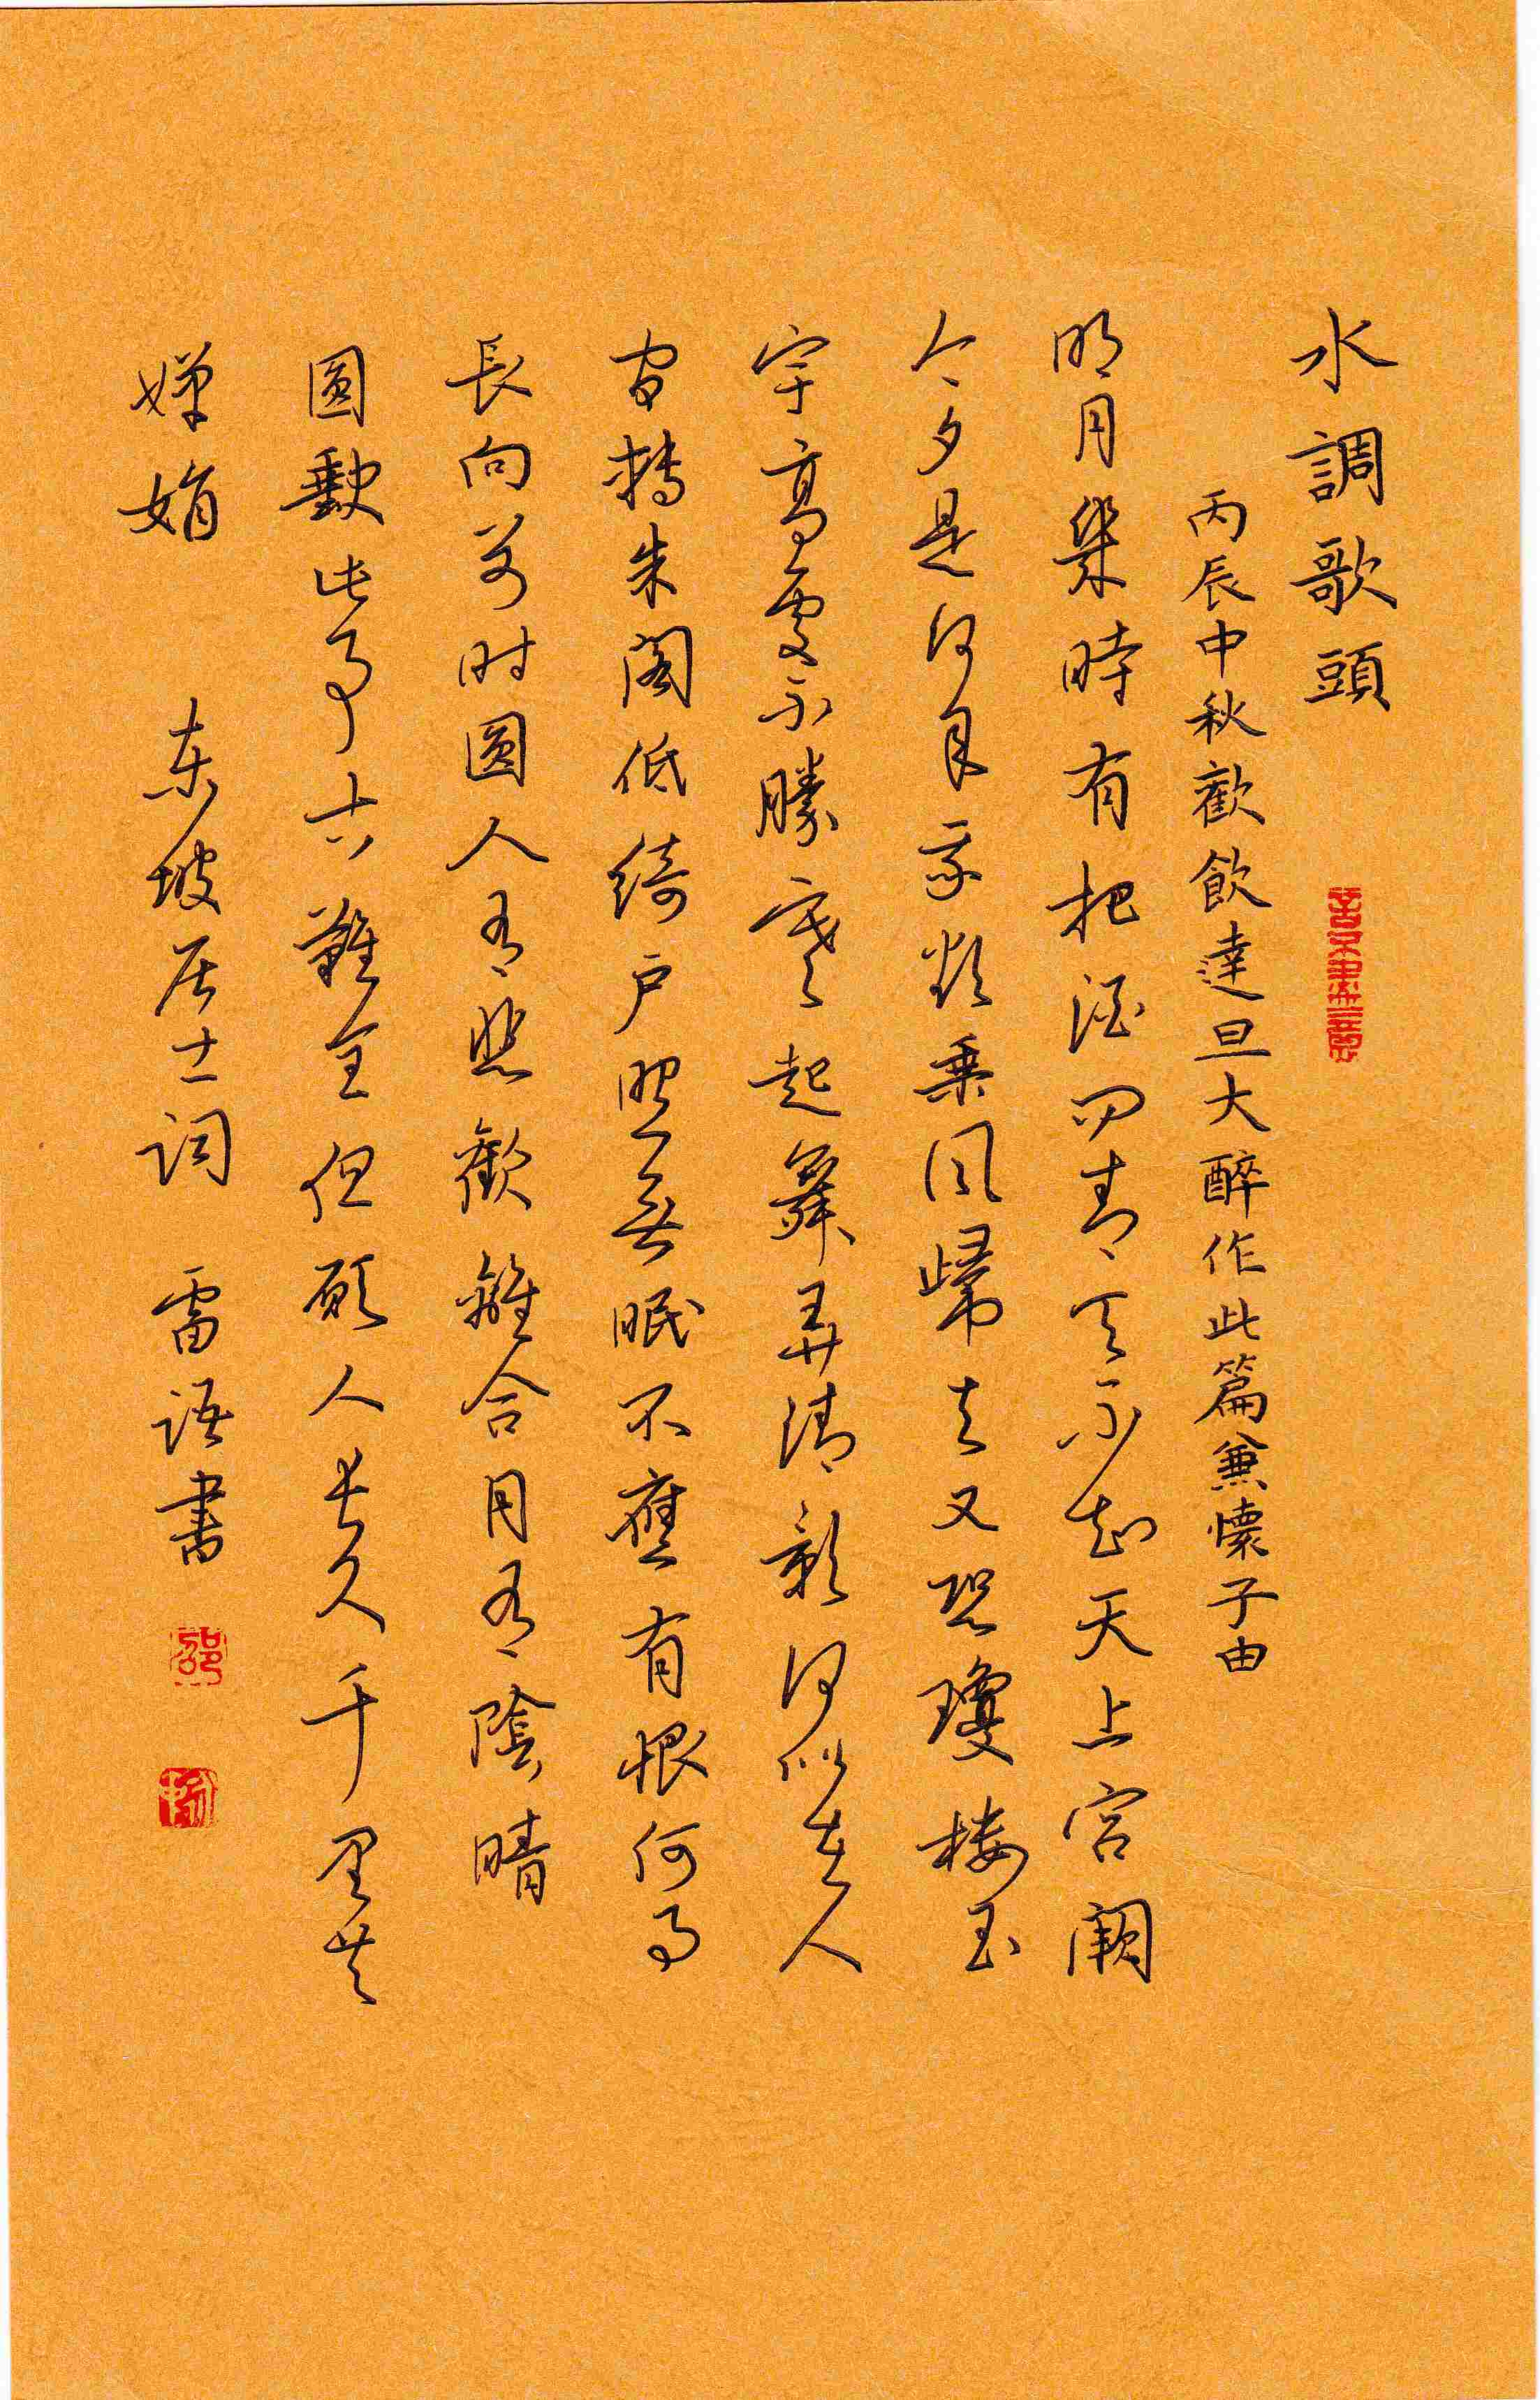 水調歌頭
丙辰中秋歡飲達旦大醉作此篇兼懷子由
明月幾時有把酒問青天不知天上宮闕
今夕是何年我欲乘風歸去又恐瓊樓玉
宇高處不勝寒起舞弄清影何似在人
間轉朱閣低綺戶照無眠不應有恨何事
長向別时圓人有悲歡離合月有陰晴
圓缺此事古難全但願人長久千里共
嬋娟 东坡居士词 雷语書
邵